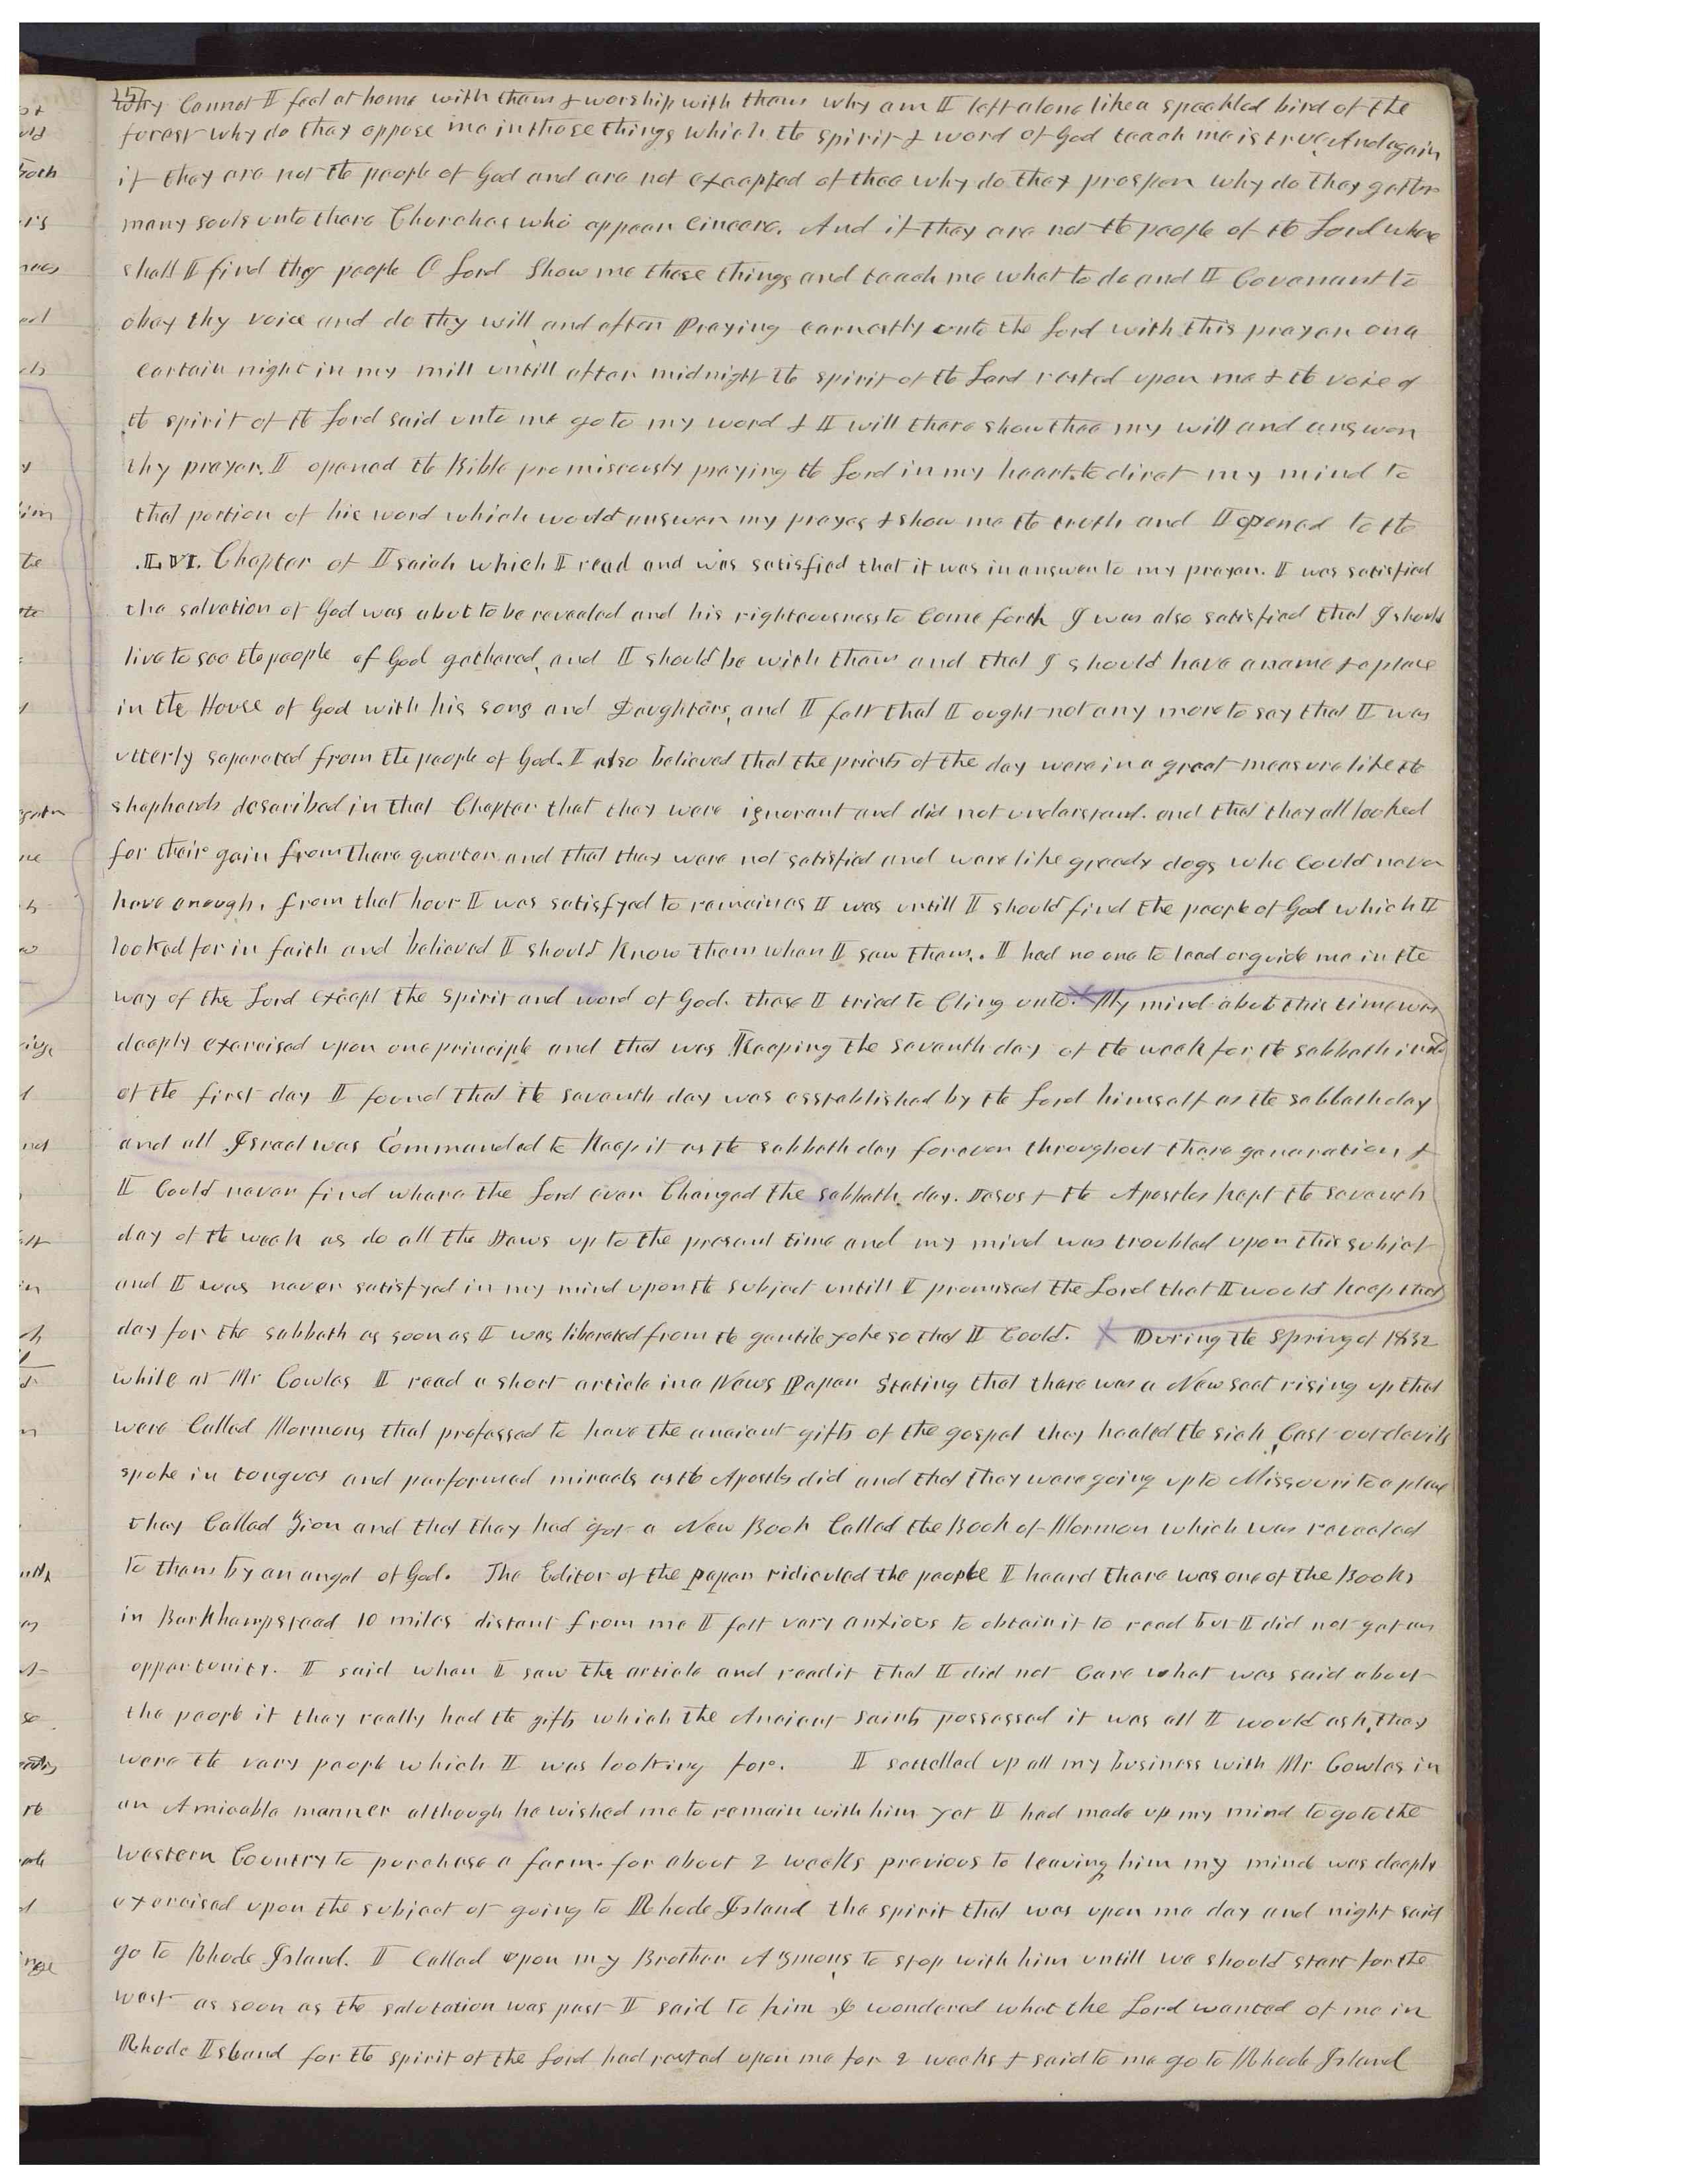 why Cannot I feel at home with them & worship with them why am I left alone like a speckled bird of the
forest why do they oppose me in those things which the spirit & word of God teach me is true, And again
if they are not the people of God and are not excepted of thee why do they prosper why do they gather
many souls unto there Churches who appear Cincere. And if they are not the people of the Lord where
shall I find thy people O Lord Show me these things and teach me what to do and I Covenant to
obey thy voice and do thy will, and after Praying earnestly unto the Lord with this prayer on a
certain night in my mill untill after midnight the spirit of the Lord rested upon me & the voice of
the spirit of the Lord said unto me go to my word & I will there show thee my will and answer
thy prayer. I opened the Bible promiscously praying the Lord in my heart to dirct my mind to
that portion of his word which would answer my prayer & show me the truth and I opened to the
.LVI. Chapter of Isaiah which I read and was satisfied that it was in answer to my prayer. I was satisfied
the salvation of God was about to be revealed and his righteousness to Come forth I was also satisfied that I should
live to see the people of God gathered, and I should be with them and that I should have a name & a place
in the House of God with his sons and Daughters, and I felt that I ought not any more to say that I was
utterly saparated from the people of God. I also believed that the priests of the day were in a great measure like the
shepherds described in that Chapter that they were ignorant and did not understand. and that they all looked
for their gain from there quarter and that they were not satisfied and were like greedy dogs who Could never
have enough. from that hour I was satisfyed to remain as I was untill I should find the people of God which I
looked for in faith and believed I should Know them when I saw them.. I had no one to lead or guide me in the
way of the Lord except the spirit and word of God. these I tried to Cling unto. My mind about this time was
deeply exercised upon one principle and that was Keeping the seventh day of the week for the sabbath instd
of the first day I found that the seventh day was esstablished by the Lord himself as the sabbath day
and all Israel was Commanded to Keep it as the sabbath day forever throughout there generation &
I Could never find where the Lord ever Changed the sabbath day. Jesus & the Apostles kept the seventh
day of the week as do all the Jews up to the present time and my mind was troubled upon this subjet
and I was never satisfyed in my mind upon the subject untill I promised the Lord that I would keep that
day for the sabbath as soon as I was liberated from the gentile yoke so that I Could. X During the Spring of 1832
while at Mr Cowles I read a short article in a News Paper Stating that there was a New sect rising up that
were Called Mormons that professed to have the ancient gifts of the gospel they healed the sick, Cast out devils
spoke in tongues and performed miracls as the Apostls did and that they were going up to Missouri to a place
they Called Zion and that they had got a New Book Called the Book of Mormon which was revealed
to them by an angel of God. The Editor of the paper ridiculed the people I heard there was one of the Books
in Barkhampstead 10 miles distant from me I felt very anxious to obtain it to read but I did not get an
oppertunity. I said when I saw the article and read it that I did not Care what was said about
the people if they really had the gifts which the Ancient saints possessed it was all I would ask, they
were the very people which I was looking for. I settelled up all my business with Mr Cowles in
an Amicable manner although he wished me to remain with him yet I had made up my mind to go to the
western Country to purchase a farm. for about 2 weeks previous to leaving him my mind was deeply
exercised upon the subject of going to Rhode Island the spirit that was upon me day and night said
go to Rhode Island. I Called upon my Brother Azmon to stop with him untill we should start for the
west as soon as the salutation was past I said to him I wondered what the Lord wanted of me in
Rhode Island for the spirit of the Lord had rested upon me for 2 weeks & said to me go to Rhode Island